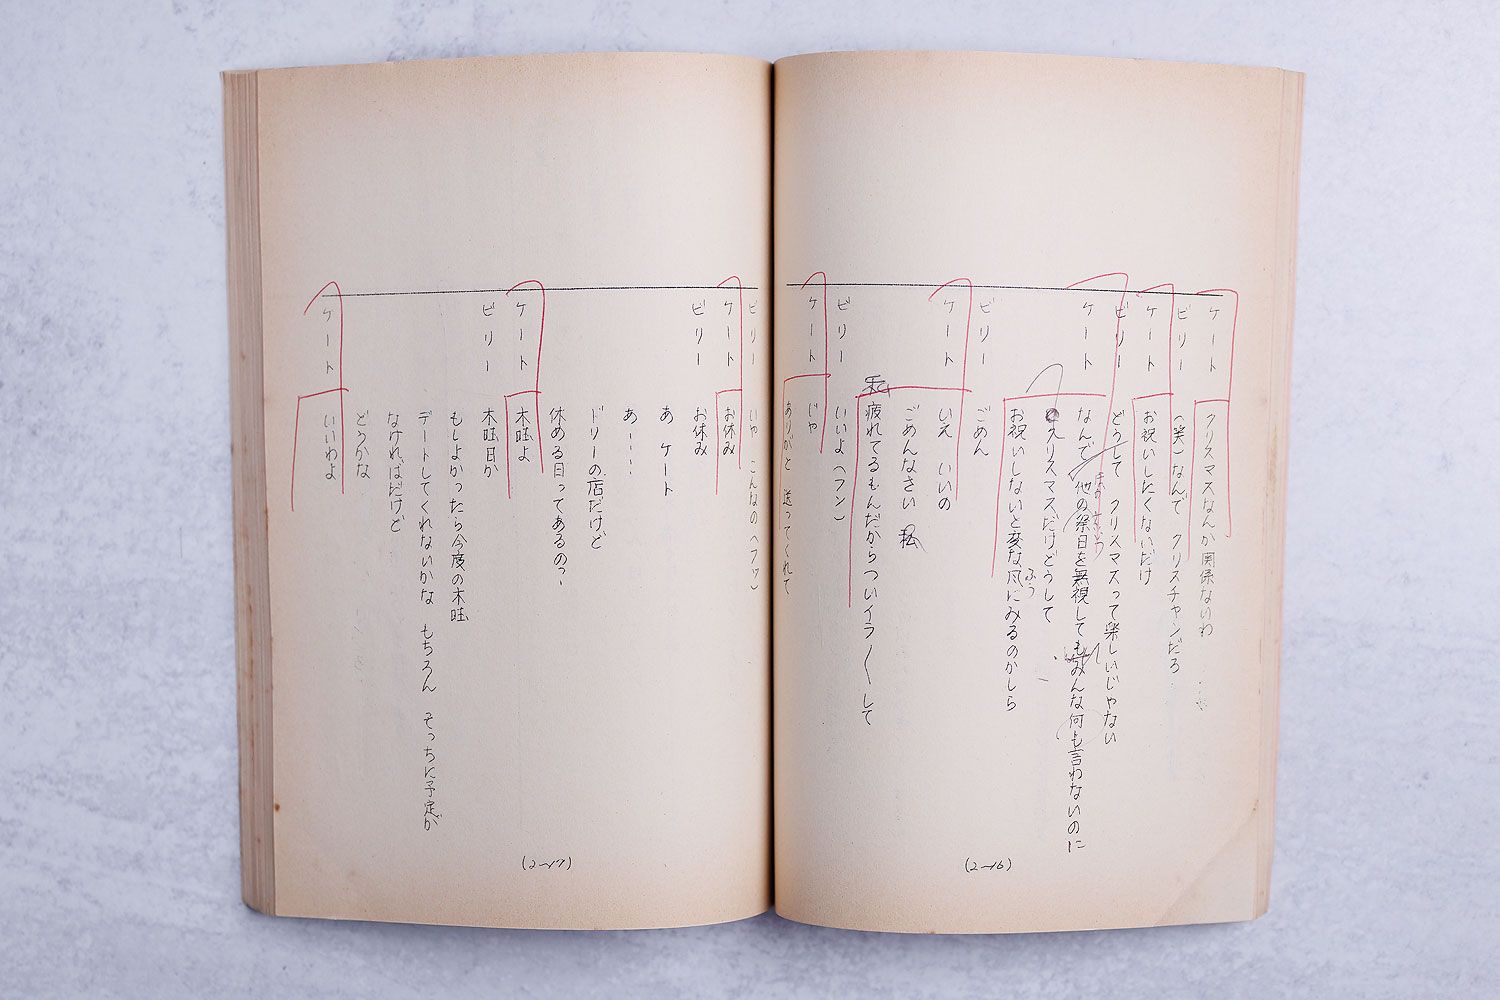 ケート クリスマスなんか関係ないわ
ビリー （笑）なんで クリスチャンだろ
ケート お祝いしたくないだけ
ビリー どうして クリスマスって楽しいじゃない
ケート なんで 他の祭日を無視してもみんな何も言わないのに
クリスマスだけどうして
お祝いしないと変な風にみるのかしら
ふう
ビリー ごめん
ケート いえ いいの
ごめんなさい 私
私 疲れてるもんだからついイライラして
ビリー いいよ（フン）
ケート じゃ
ありがと 送ってくれて
(2-16)
ビリー いや こんなの（フッ）
ケート お休み
ビリー お休み
あ ケート
あ――――
ドリーの店だけど
休める日ってあるの?
ケート 木旺よ
ビリー 木旺日か
もしよかったら今度の木旺
デートしてくれないかな もちろん そっちに予定が
なければだけど
どうかな
ケート いいわよ
(2-17)